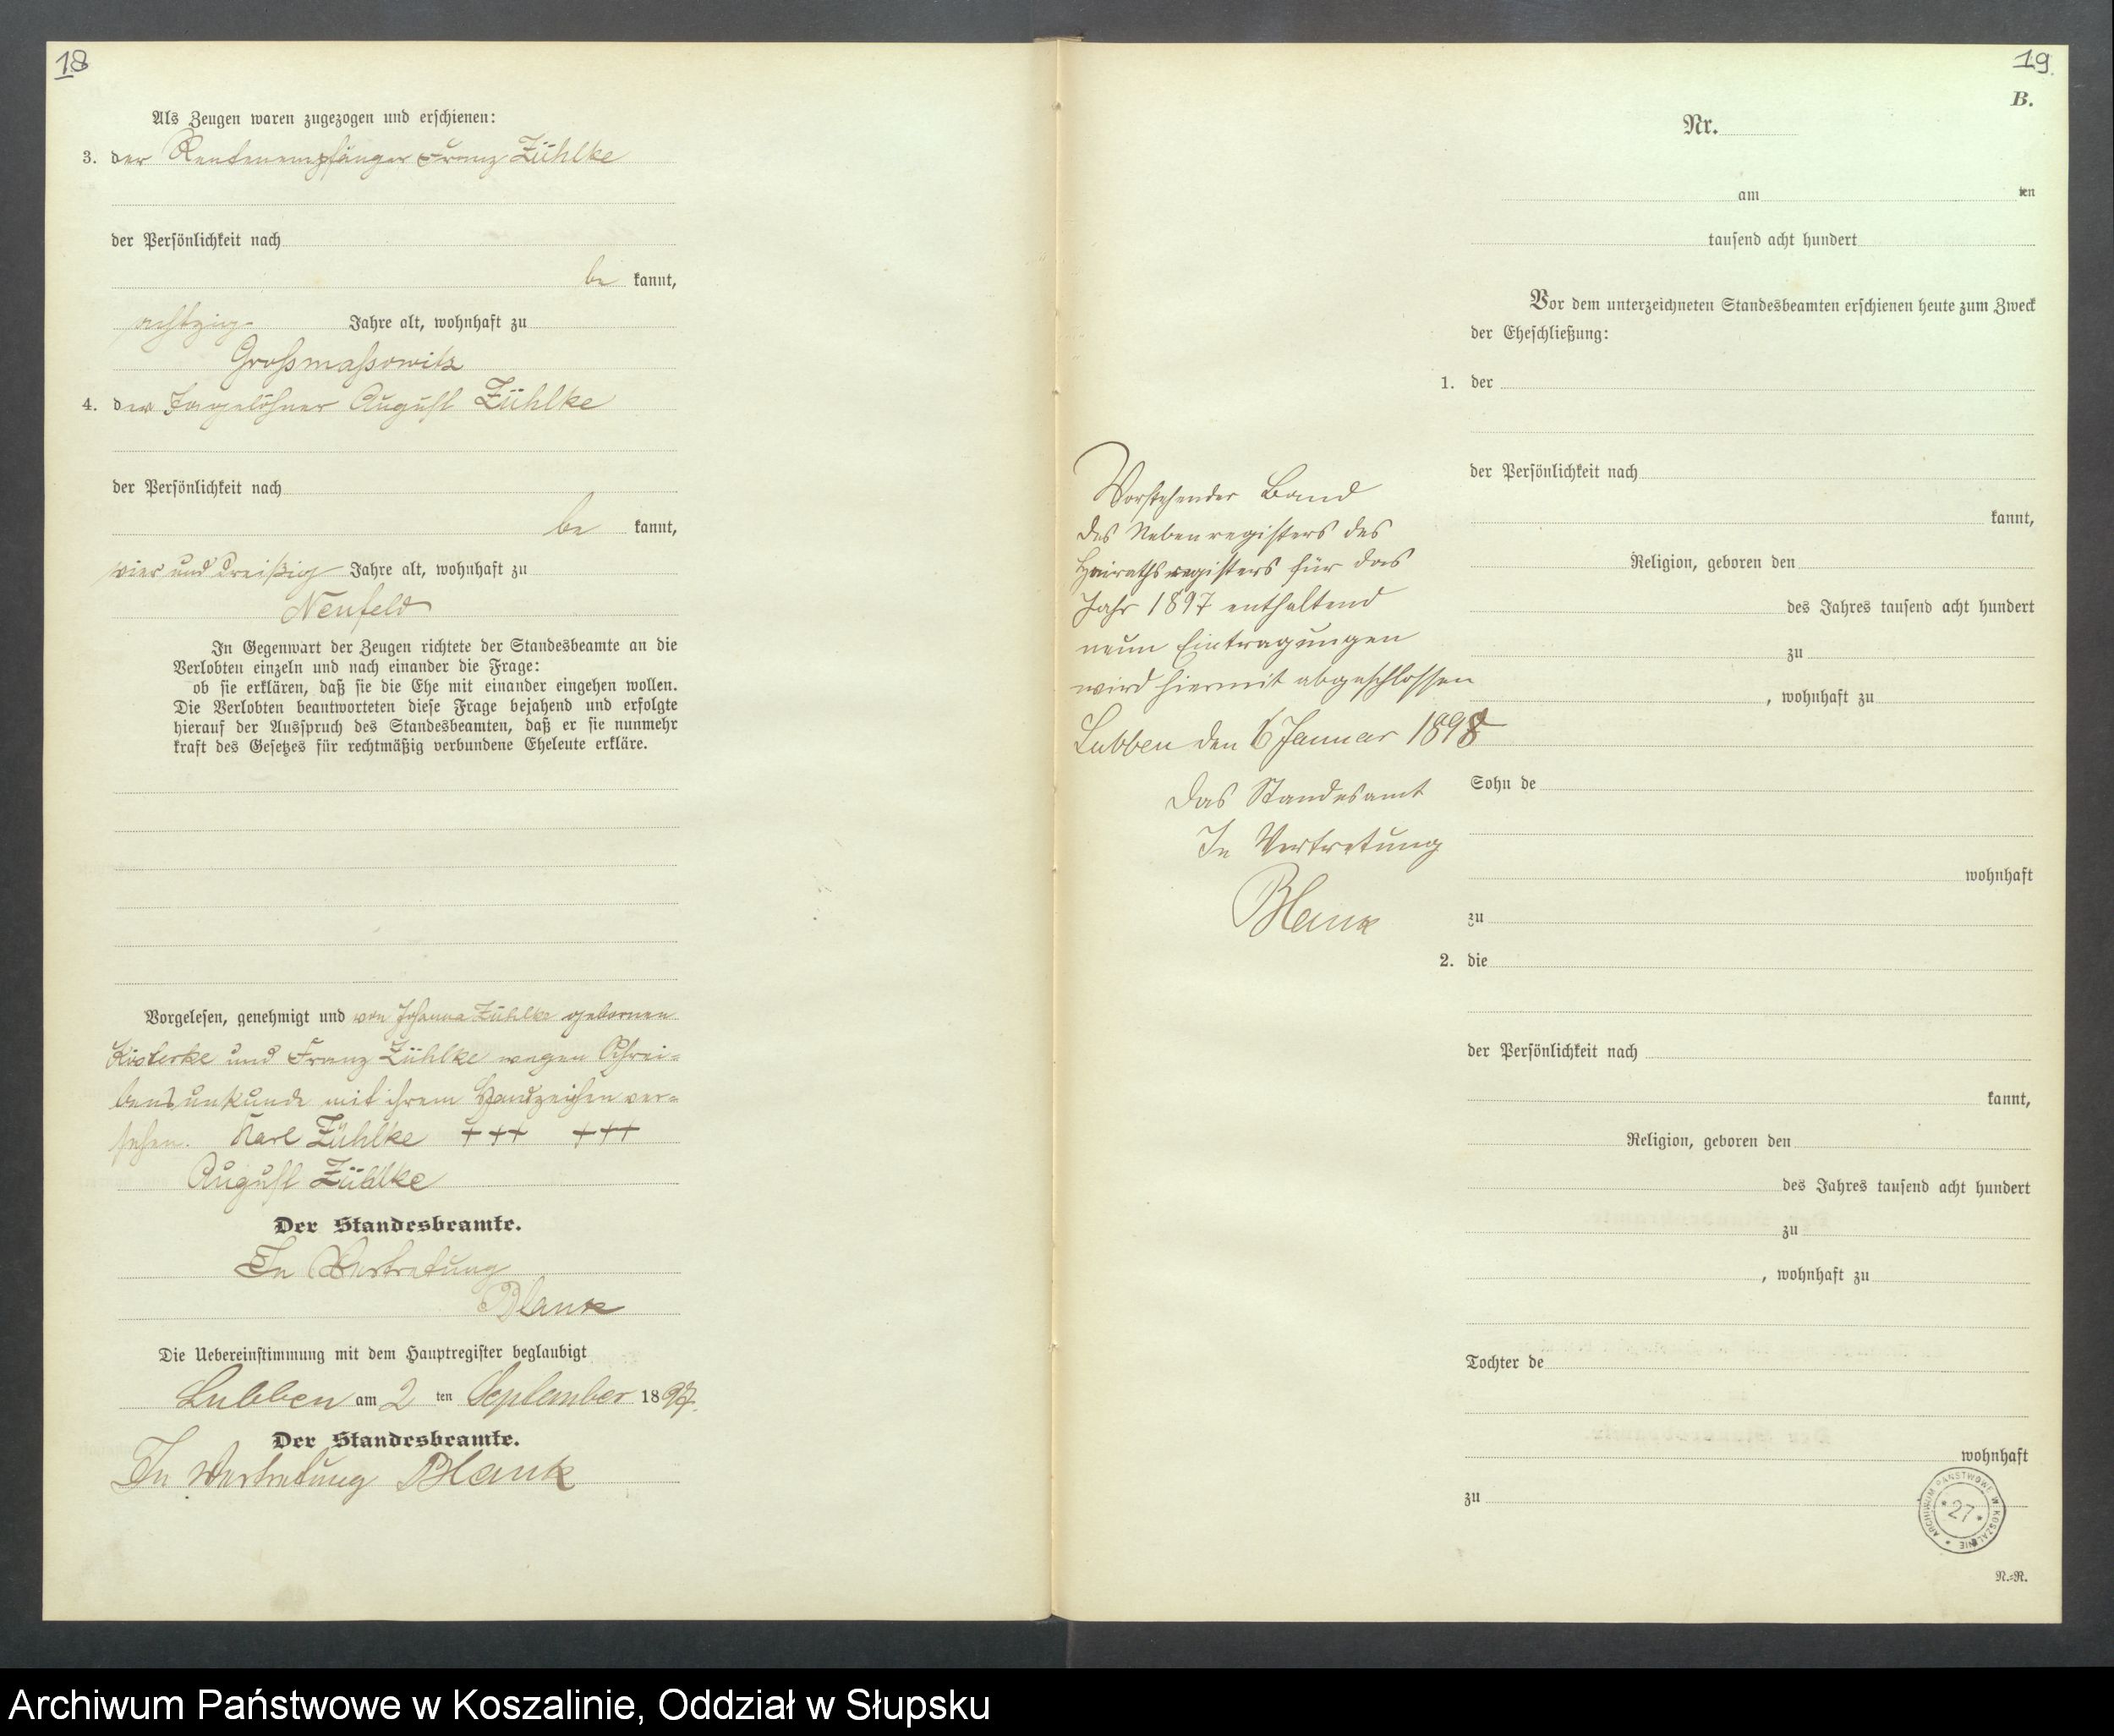 18
Als Zeugen waren zugezogen und erschienen:
3. der Rentenempfänger Franz Zühlke
der Persönlichkeit nach
be kannt,
achtzig Jahre alt, wohnhaft zu
Großmaßowitz
4. der Tagelöhner August Zühlke
der Persönlichkeit nach
be kannt,
vier und dreißig Jahre alt, wohnhaft zu
Neufeld
In Gegenwart der Zeugen richtete der Standesbeamte an die
Verlobten einzeln und nach einander die Frage:
ob sie erklären, daß sie die Ehe mit einander eingehen wollen.
Die Verlobten beantworteten diese Frage bejahend und erfolgte
hierauf der Ausspruch des Standesbeamten, daß er sie nunmehr
kraft des Gesetzes für rechtmäßig verbundene Eheleute erkläre.
Vorgelesen, genehmigt und von Johanna Zühlke gebornen
und Franz Zühlke wegen Schrei=
bensunkunde mit ihrem Handzeichen ver=
sehen. Karl Zühlke +++ +++
August Zühlke
Der Standesbeamte.
In Vertretung
Blank
Die Uebereinstimmung mit dem Hauptregister beglaubigt
Lubben am 2 ten September 1897.
Der Standesbeamte.
In Vertretung Blank
19
B.
Nr.
am ten
tausend acht hundert
Vor dem unterzeichneten Standesbeamten erschienen heute zum Zweck
der Eheschließung:
1. der
der Persönlichkeit nach
kannt,
Religion, geboren den
des Jahres tausend acht hundert
zu
, wohnhaft zu
Sohn de
wohnhaft
zu
2. die
der Persönlichkeit nach
kannt,
Religion, geboren den
des Jahres tausend acht hundert
zu
, wohnhaft zu
Tochter de
wohnhaft
zu
N.=R.
Vorstehender Band
des Nebenregisters des
Heirathsregisters für das
Jahr 1897 enthaltend
neun Eintragungen
wird hiermit abgeschlossen
Lubben den 6 Januar 1898
Das Standesamt
In Vertretung
Blank
ARCHIWUM PAŃSTWOWE W KOSZALINIE
* 27 *
Archiwum Państwowe w Koszalinie, Oddział w Słupsku